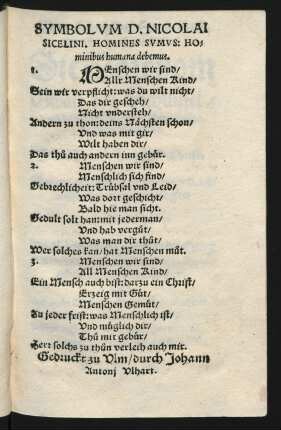 SYMBOLVM D. NICOLAI
SICELINI. HOMINES SVMVS: HO⸗
minibus humana debemus.
1. MEnschen wir sind/
Allr Menschen Kind/
Sein wir verpflicht: was du wilt nicht/
Das dir gescheh/
Nicht vndersteh/
Andern zu thon: deins Nächsten schon/
Vnd was mit gir/
Wilt haben dir/
Das thů auch andern inn gebür.
2. Menschen wir sind/
Menschlich sich find/
Gebrechlicheit: Trübsal vnd Leid/
Was dort geschicht/
Bald hie man sicht.
Gedult solt han: mit jederman/
Vnd hab vergůt/
Was man dir thůt/
Wer solches kan/ hat Menschen můt.
3. Menschen wir sind/
All Menschen Kind/
Ein Mensch auch bist: darzu ein Christ/
Erzeig mit Güt/
Menschen Gemüt/
Zu jeder frist: was Menschlich ist/
Vnd müglich dir/
Thů mit gebür/
Herr solchs zu thůn verleih auch mir.
Gedruckt zu Vlm/ durch Johann
Antonj Vlhart.